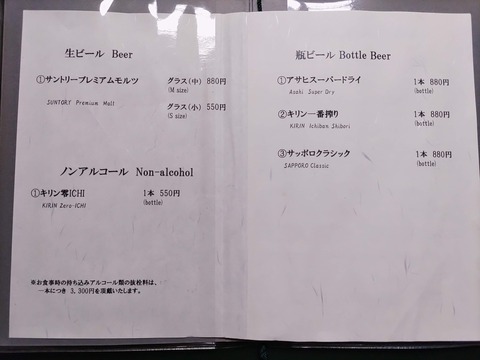 生ビール Beer
①サントリープレミアムモルツ グラス(中) 880円
(M size)
SUNTORY Premium Malt グラス(小) 550円
(S size)
ノンアルコール Non-alcohol
①キリン零ICHI 1本 550円
KIRIN Zero-ICHI (bottle)
※お食事時の持ち込みアルコール類の抜栓料は、
一本につき 3,300円を頂戴いたします。
瓶ビール Bottle Beer
①アサヒスーパードライ 1本 880円
Asahi Super Dry (bottle)
②キリン一番搾り 1本 880円
KIRIN Ichiban Shibori (bottle)
③サッポロクラシック 1本 880円
SAPPORO Classic (bottle)